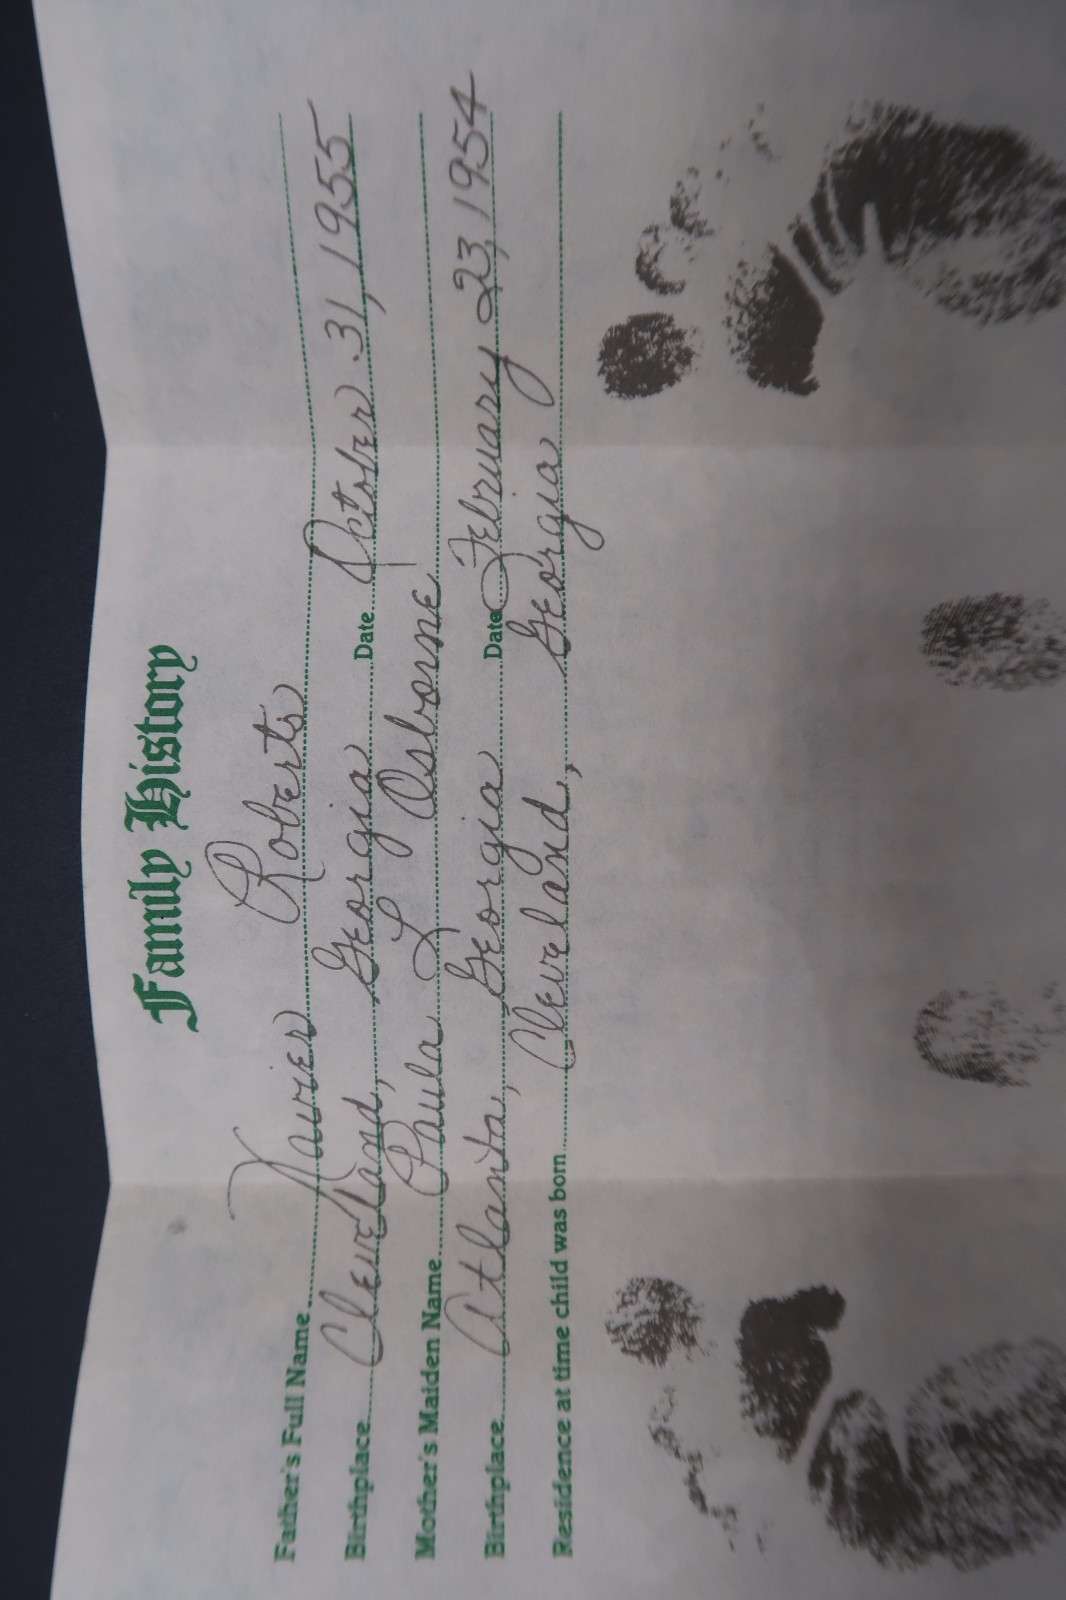 Family History
Father's Full Name Xavier Roberts
Birthplace Cleveland, Georgia Date October 31, 1955
Mother's Maiden Name Paula L Osborne
Birthplace Atlanta, Georgia Date February 23, 1954
Residence at time child was born Cleveland, Georgia